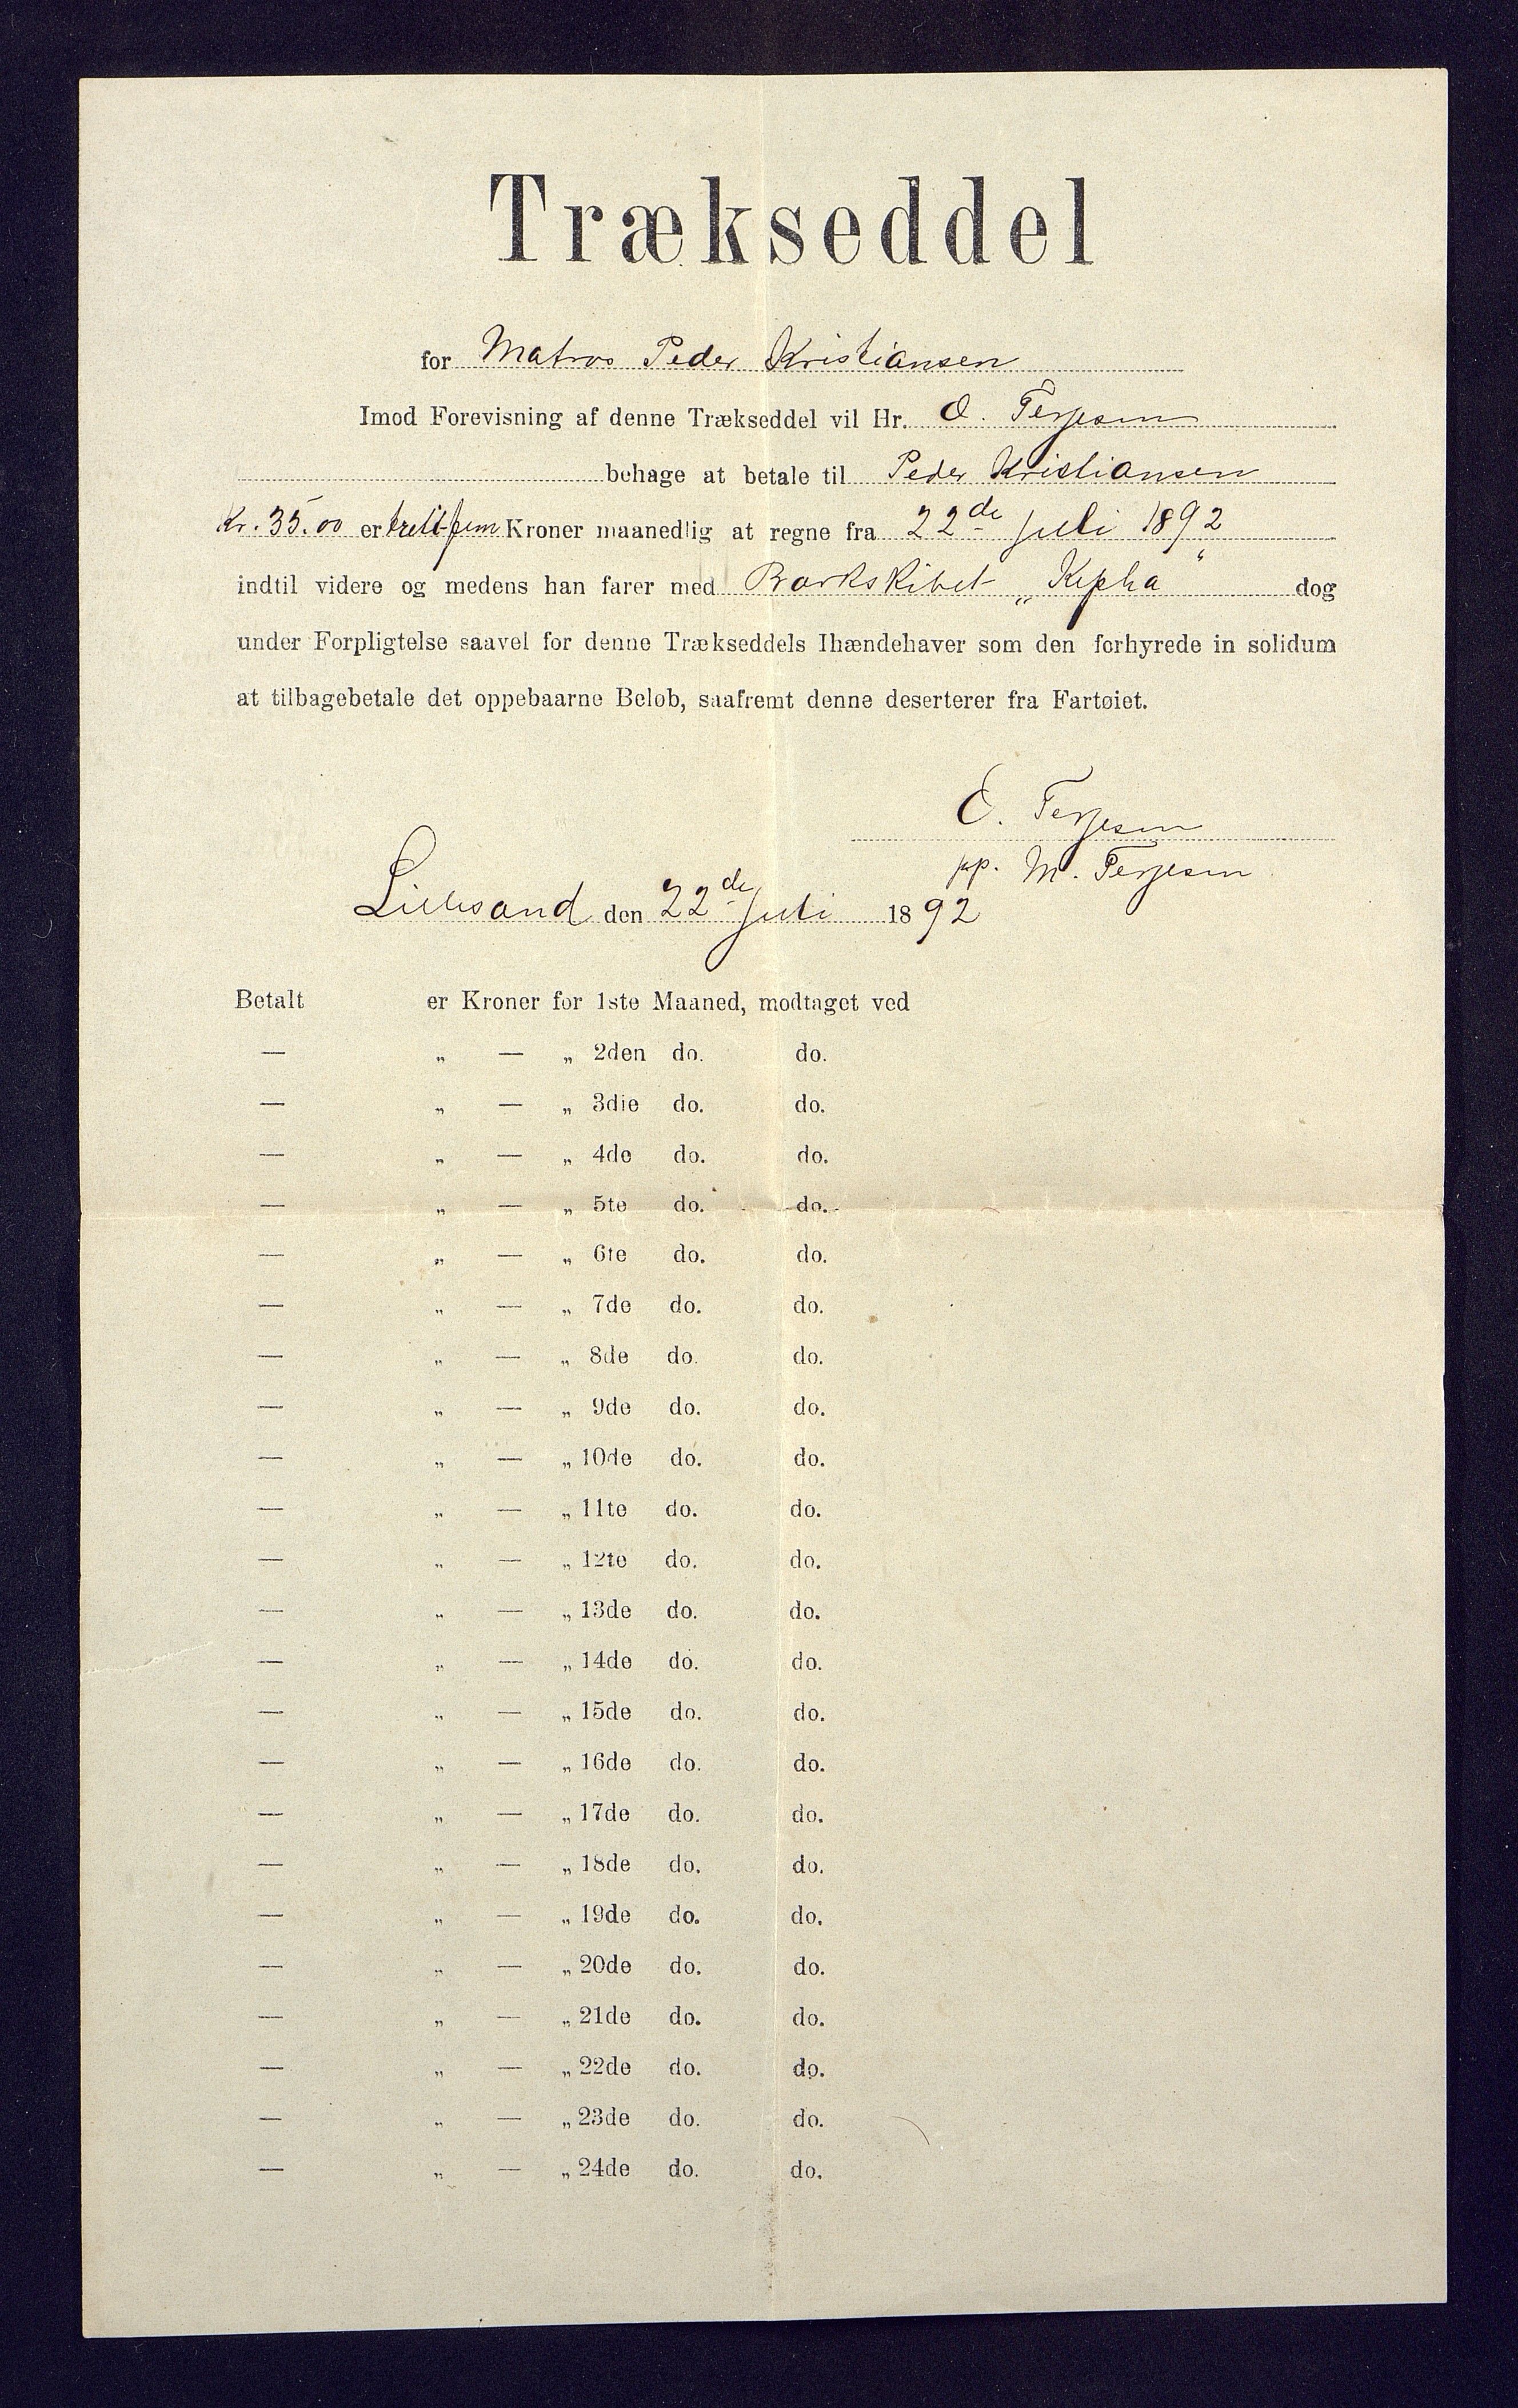 Trækseddel
for Matros Peder Kristiansen
Imod Forevisning af denne Trækseddel vil Hr. O. Terjesen
behage at betale til Peder Kristiansen
Kr. 35.00 er trettifem Kroner maanedlig at regne fra 22de juli 1892
indtil videre og medens han farer med Barkskibet „Kepha" dog
under Forpligtelse saavel for denne Trækseddels Ihændehaver som den forhyrede in solidum
at tilbagebetale det oppebaarne Beløb, saafremt denne deserterer fra Fartøiet.
O. Terjesen
pp. M. Terjesen
Lillesand den 22de juli 1892
Betalt er Kroner for 1ste Maaned, modtaget ved
— „ — „ 2den do. do.
— „ — „ 3die do. do.
— „ — „ 4de do. do.
— „ — „ 5te do. do.
— „ — „ 6te do. do.
— „ — „ 7de do. do.
— „ — „ 8de do. do.
— „ — „ 9de do. do.
— „ — „ 10de do. do.
— „ — „ 11te do. do.
— „ — „ 12te do. do.
— „ — „ 13de do. do.
— „ — „ 14de do. do.
— „ — „ 15de do. do.
— „ — „ 16de do. do.
— „ — „ 17de do. do.
— „ — „ 18de do. do.
— „ — „ 19de do. do.
— „ — „ 20de do. do.
— „ — „ 21de do. do.
— „ — „ 22de do. do.
— „ — „ 23de do. do.
— „ — „ 24de do. do.